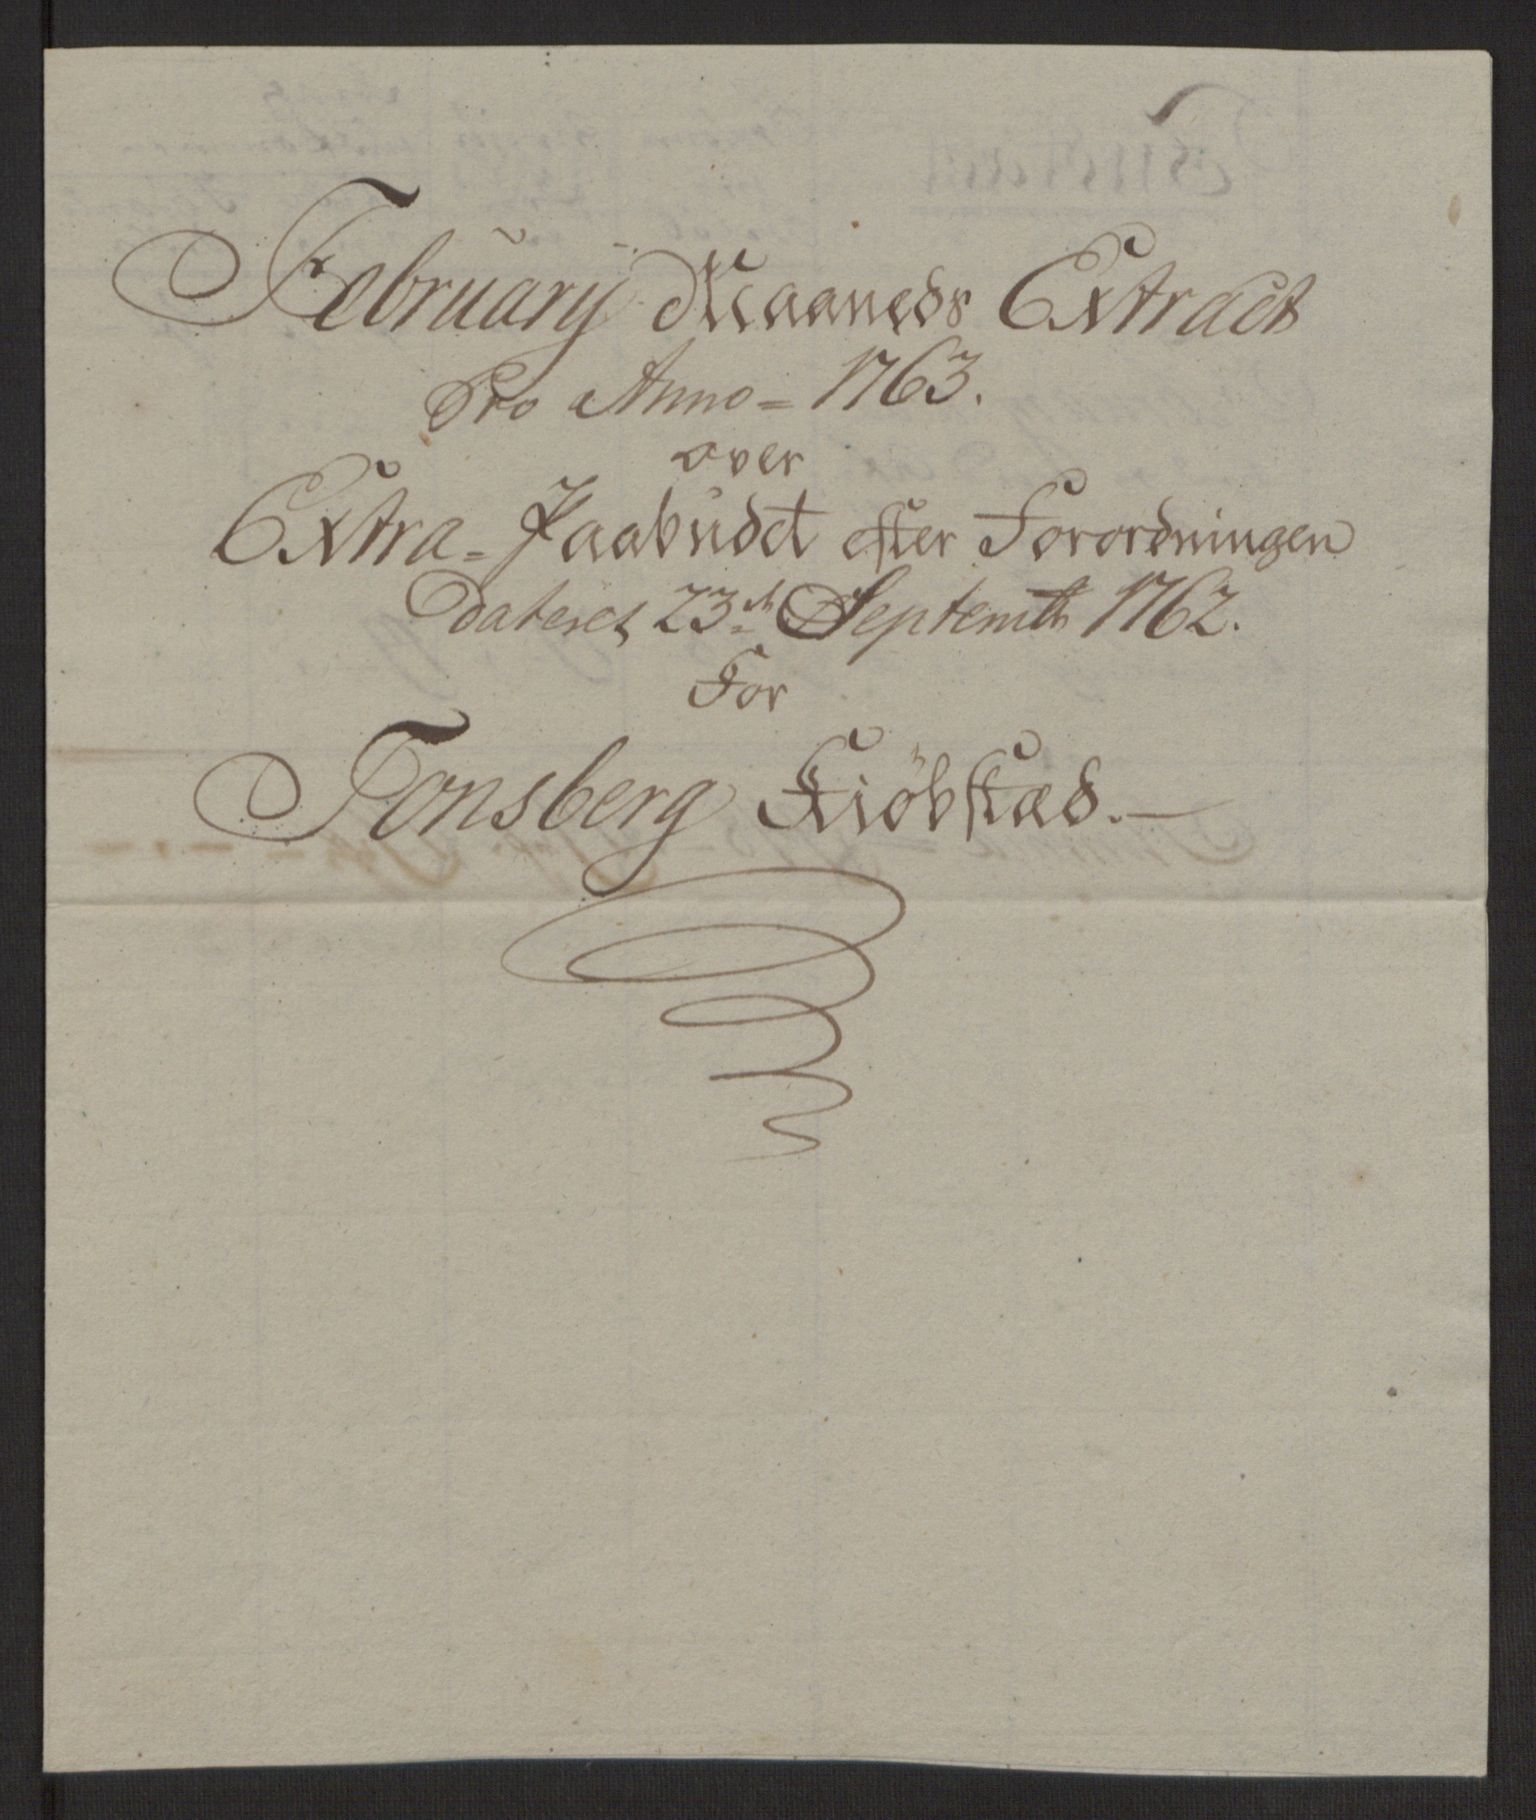 Februarÿ Maaneds Extract
Pro Anno = 1763.
over
Extra = Paabudet efter Forordningen
Dateret 23de Septembr 1762.
For
Tonsberg Kiöbstæd. —